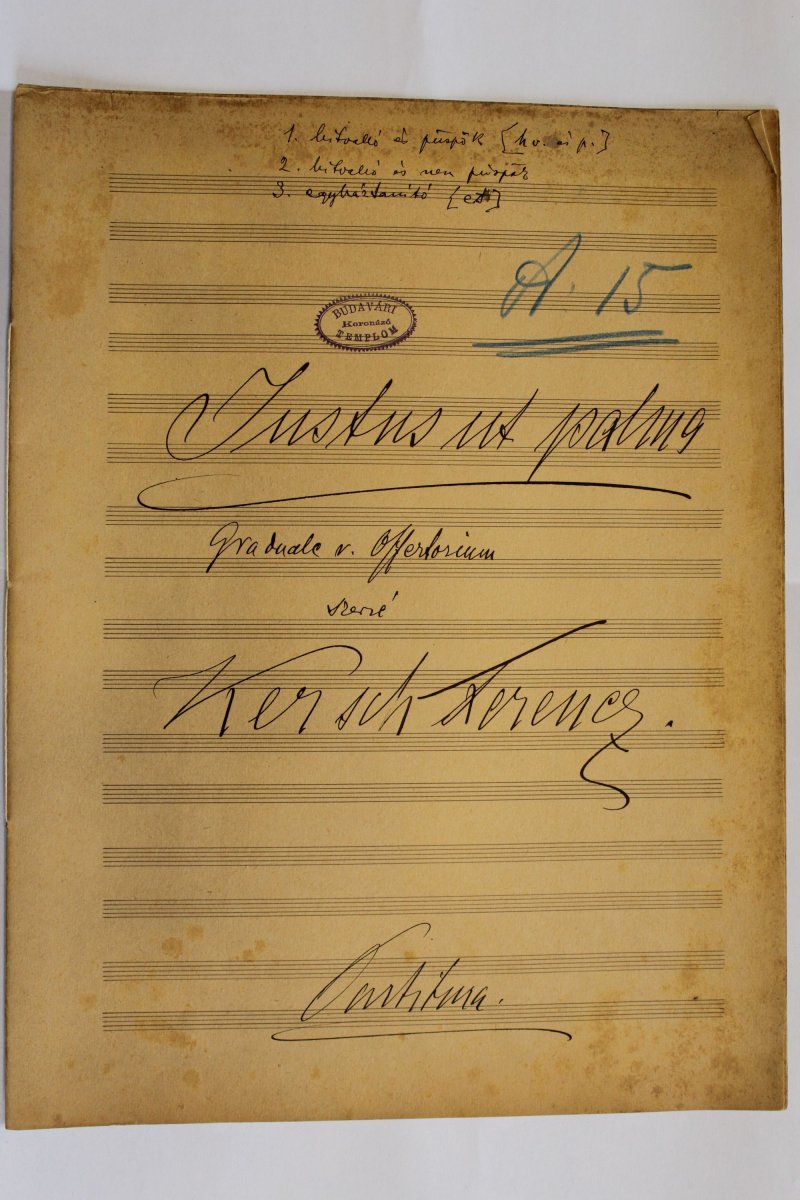 1. hitvalló és püspök [hv. és p.]
2. hitvalló és nem püspök
3. egyháztanító [et]
A. 15
BUDAVÁRI
Koronázó
TEMPLOM
Justus ut palma
Graduale v. Offertorium
szerzé
Kersch Ferencz.
Partitura.